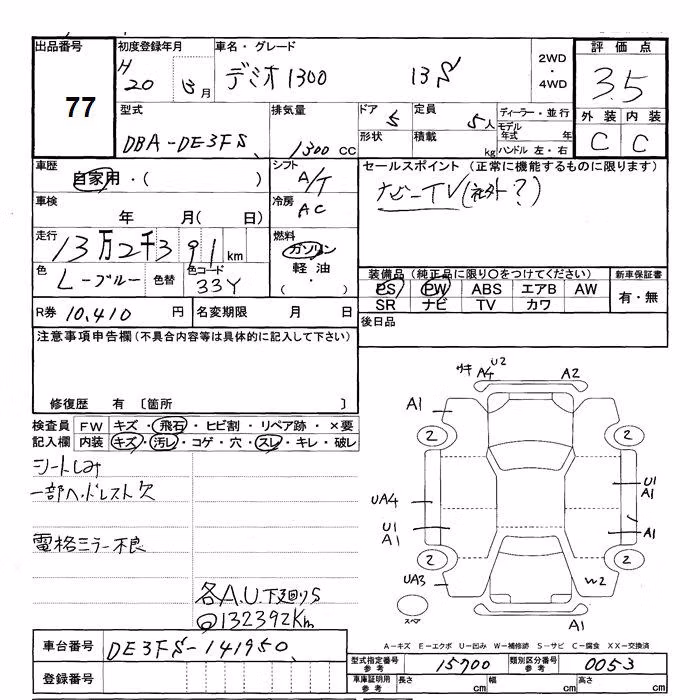 出品番号 初度登録年月 車名・グレード 評価点
77
H 20 月 デミオ1300 13S 2WD・4WD 3.5
外装 内装
C C
型式 排気量 ドア 定員 ディーラー・並行
DBA-DE3FS 1300cc 5 5人 モデル年式 年
形状 積載 kg ハンドル 左・右
車歴 シフト セールスポイント (正常に機能するものに限ります)
自家用・( ) A/T ナビーTV(社外?)
車検 冷房
年 月( 日) AC
走行 燃料
13万2千391km ガソリン
軽油
( ・ )
色 色替 色コード
L-ブルー 33Y
装備品(純正品に限り○をつけてください) 新車保証書
PS PW ABS エアB AW 有・無
SR ナビ TV カワ
R券 10,410円 名変期限 月 日 後日品
注意事項申告欄(不具合内容等は具体的に記入して下さい)
修復歴 有 〔箇所 〕
検査員 FW キズ・飛石・ヒビ割・リペア跡・×要
記入欄 内装 キズ・汚レ・コゲ・穴・スレ・キレ・破レ
シートしみ
一部ヘッドレスト欠
電格ミラー不良
各A.U.下廻りS
@132392Km
キサ A4 U2 A2
A1
2 2
UA4 U1 A1
U1 A1 A1
2 2
UA3 W2
スペア A1
A-キズ E-エクボ U-凹み W-補修跡 S-サビ C-腐食 XX-交換済
車台番号 DE3FS-141950
登録番号
型式指定番号 参考 15700 類別区分番号 参考 0053
車庫証明用 参考 長さ cm 幅 cm 高さ cm